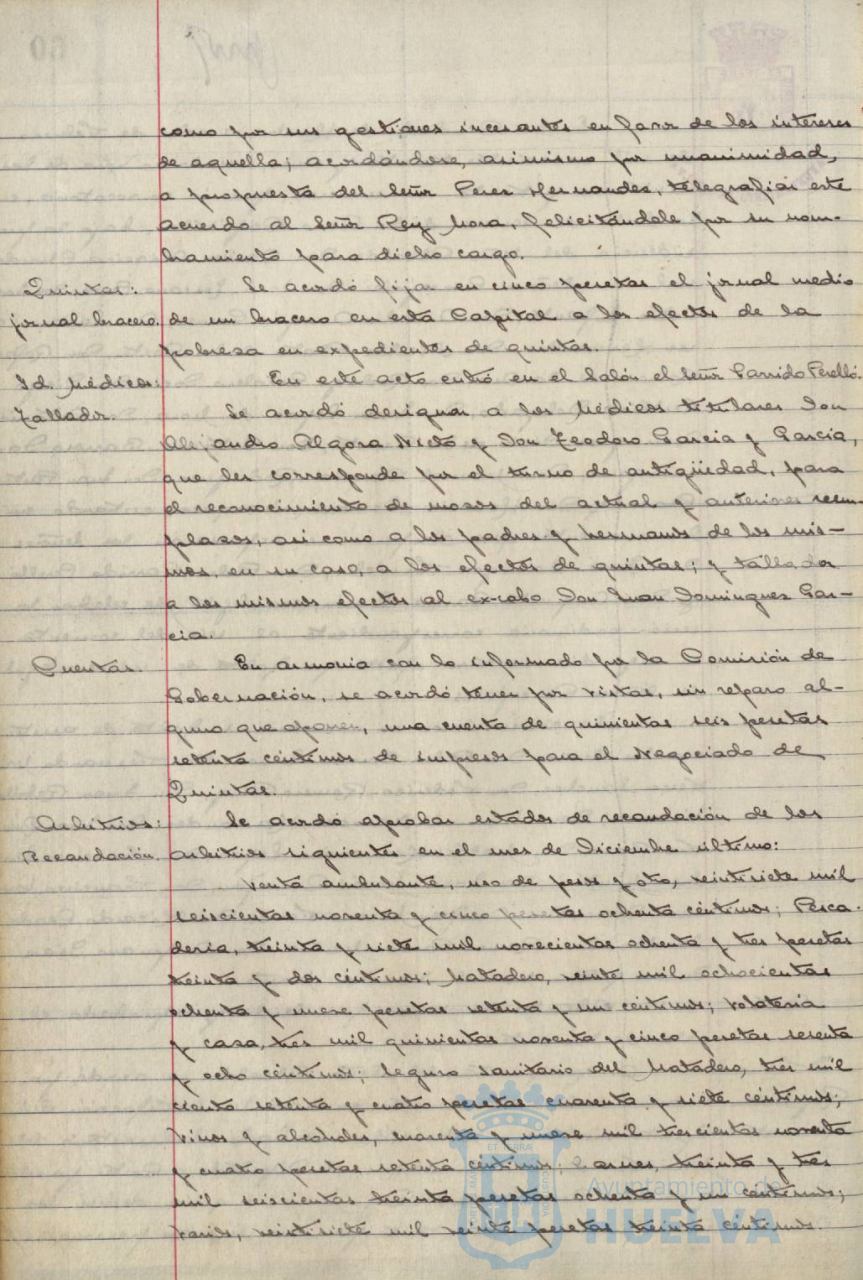 como por sus gestiones incesantes en favor de los intereses
de aquella; acordándose, asimismo por unanimidad,
a propuesta del Señor Perez Hernandez, telegrafiar este
acuerdo al Señor Rey Mora, felicitándole por su nom-
bramiento para dicho cargo.
Quintas: Se acordó fijar en cinco pesetas el jornal medio
jornal bracero. de un bracero en esta Capital a los efectos de la
pobreza en expedientes de quintas.
Id. Médicos: En este acto entró en el Salón el Señor Garrido Perelló.
Tallador. Se acordó designar a los Médicos titulares Don
Alejandro Algora Nieto y Don Teodoro Garcia y García,
que les corresponde por el turno de antigüedad, para
el reconocimiento de mozos del actual y anteriores reem-
plazos, asi como a los padres y hermanos de los mis-
mos, en su caso, a los efectos de quintas; y tallador
a los mismos efectos al ex-cabo Don Juan Dominguez Gar-
cia.
Cuentas. En armonia con lo informado por la Comisión de
Gobernación, se acordó tener por vistas, sin reparo al-
guno que oponer, una cuenta de quinientas seis pesetas
setenta céntimos de impresos para el Negociado de
Quintas.
Arbitrios: Se acordó aprobar estados de recaudación de los
Recaudación. arbitrios siguientes en el mes de Diciembre último:
Venta ambulante, uso de pesos y otro, veintisiete mil
seiscientas noventa y cinco pesetas ochenta céntimos; Pesca-
deria, treinta y siete mil novecientas ochenta y tres pesetas
treinta y dos céntimos; Matadero, veinte mil ochocientas
ochenta y nueve pesetas setenta y un céntimos; volatería
y caza, tres mil quinientas noventa y cinco pesetas sesenta
y ocho céntimos; Seguro sanitario del Matadero, tres mil
ciento setenta y cuatro pesetas cuarenta y siete céntimos;
Vinos y alcoholes, cuarenta y nueve mil trescientas noventa
y cuatro pesetas setenta céntimos; Carnes, treinta y tres
mil seiscientas treinta pesetas ochenta y un céntimos;
varios, veintisiete mil veinte pesetas treinta céntimos.
Ayuntamiento de
HUELVA